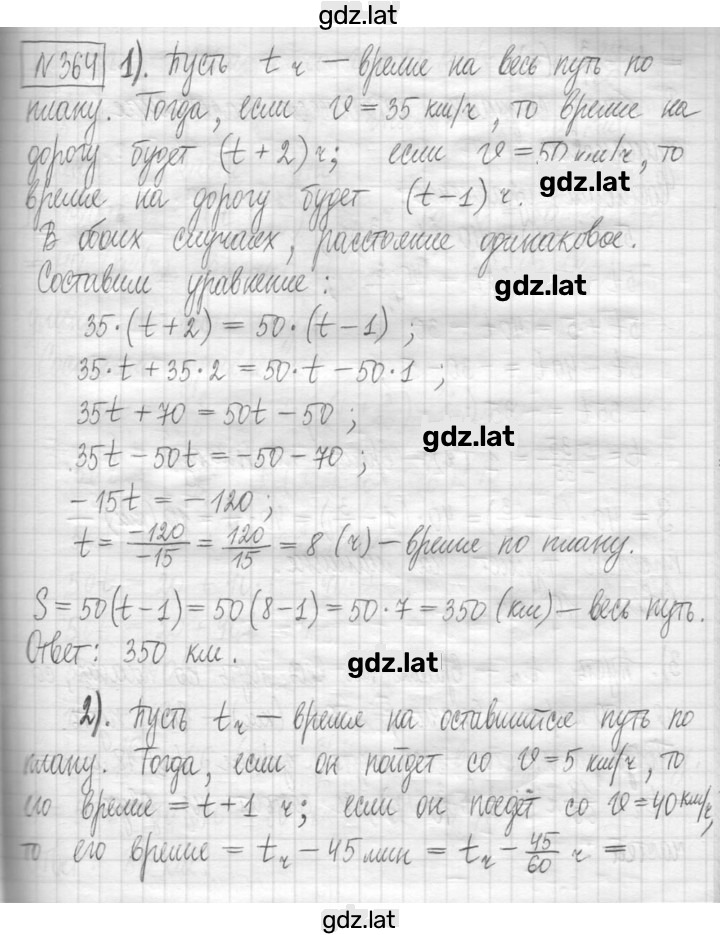 gdz.lat
№364 1). Пусть t ч – время на весь путь по
плану. Тогда, если v = 35 км/ч, то время на
дорогу будет (t + 2) ч; если v = 50 км/ч, то
gdz.lat
время на дорогу будет (t – 1) ч.
В обоих случаях, расстояние одинаковое.
Составим уравнение:
gdz.lat
35·(t + 2) = 50·(t – 1) ;
35·t + 35·2 = 50·t – 50·1 ;
35t + 70 = 50t – 50 ;
gdz.lat
35t – 50t = –50 – 70 ;
–15t = –120 ;
t = –120/–15 = 120/15 = 8 (ч) – время по плану.
S = 50(t – 1) = 50(8 – 1) = 50·7 = 350 (км) – весь путь.
Ответ: 350 км.
gdz.lat
2). Пусть t ч – время на оставшийся путь по
плану. Тогда, если он пойдет со v = 5 км/ч, то
его время = t + 1 ч; если он поедет со v = 40 км/ч,
то его время = t ч – 45 мин = t ч – 45/60 ч =
gdz.lat